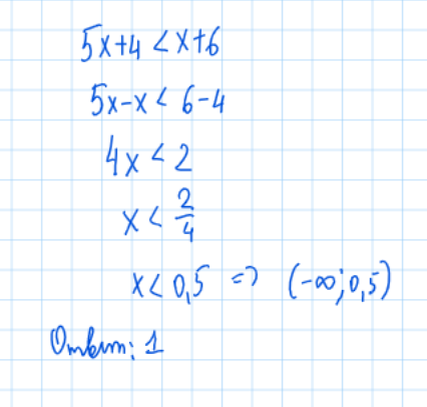 5x+4 < x+6
5x-x < 6-4
4x < 2
x < 2/4
x < 0,5 => (-∞; 0,5)
Ответ: 1